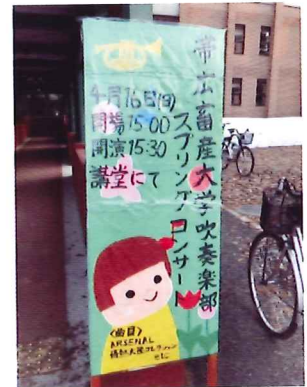 帯広畜産大学吹奏楽部
スプリングコンサート
4月16日(日)
開場15:00
開演15:30
講堂にて
<曲目>
ARSENAL